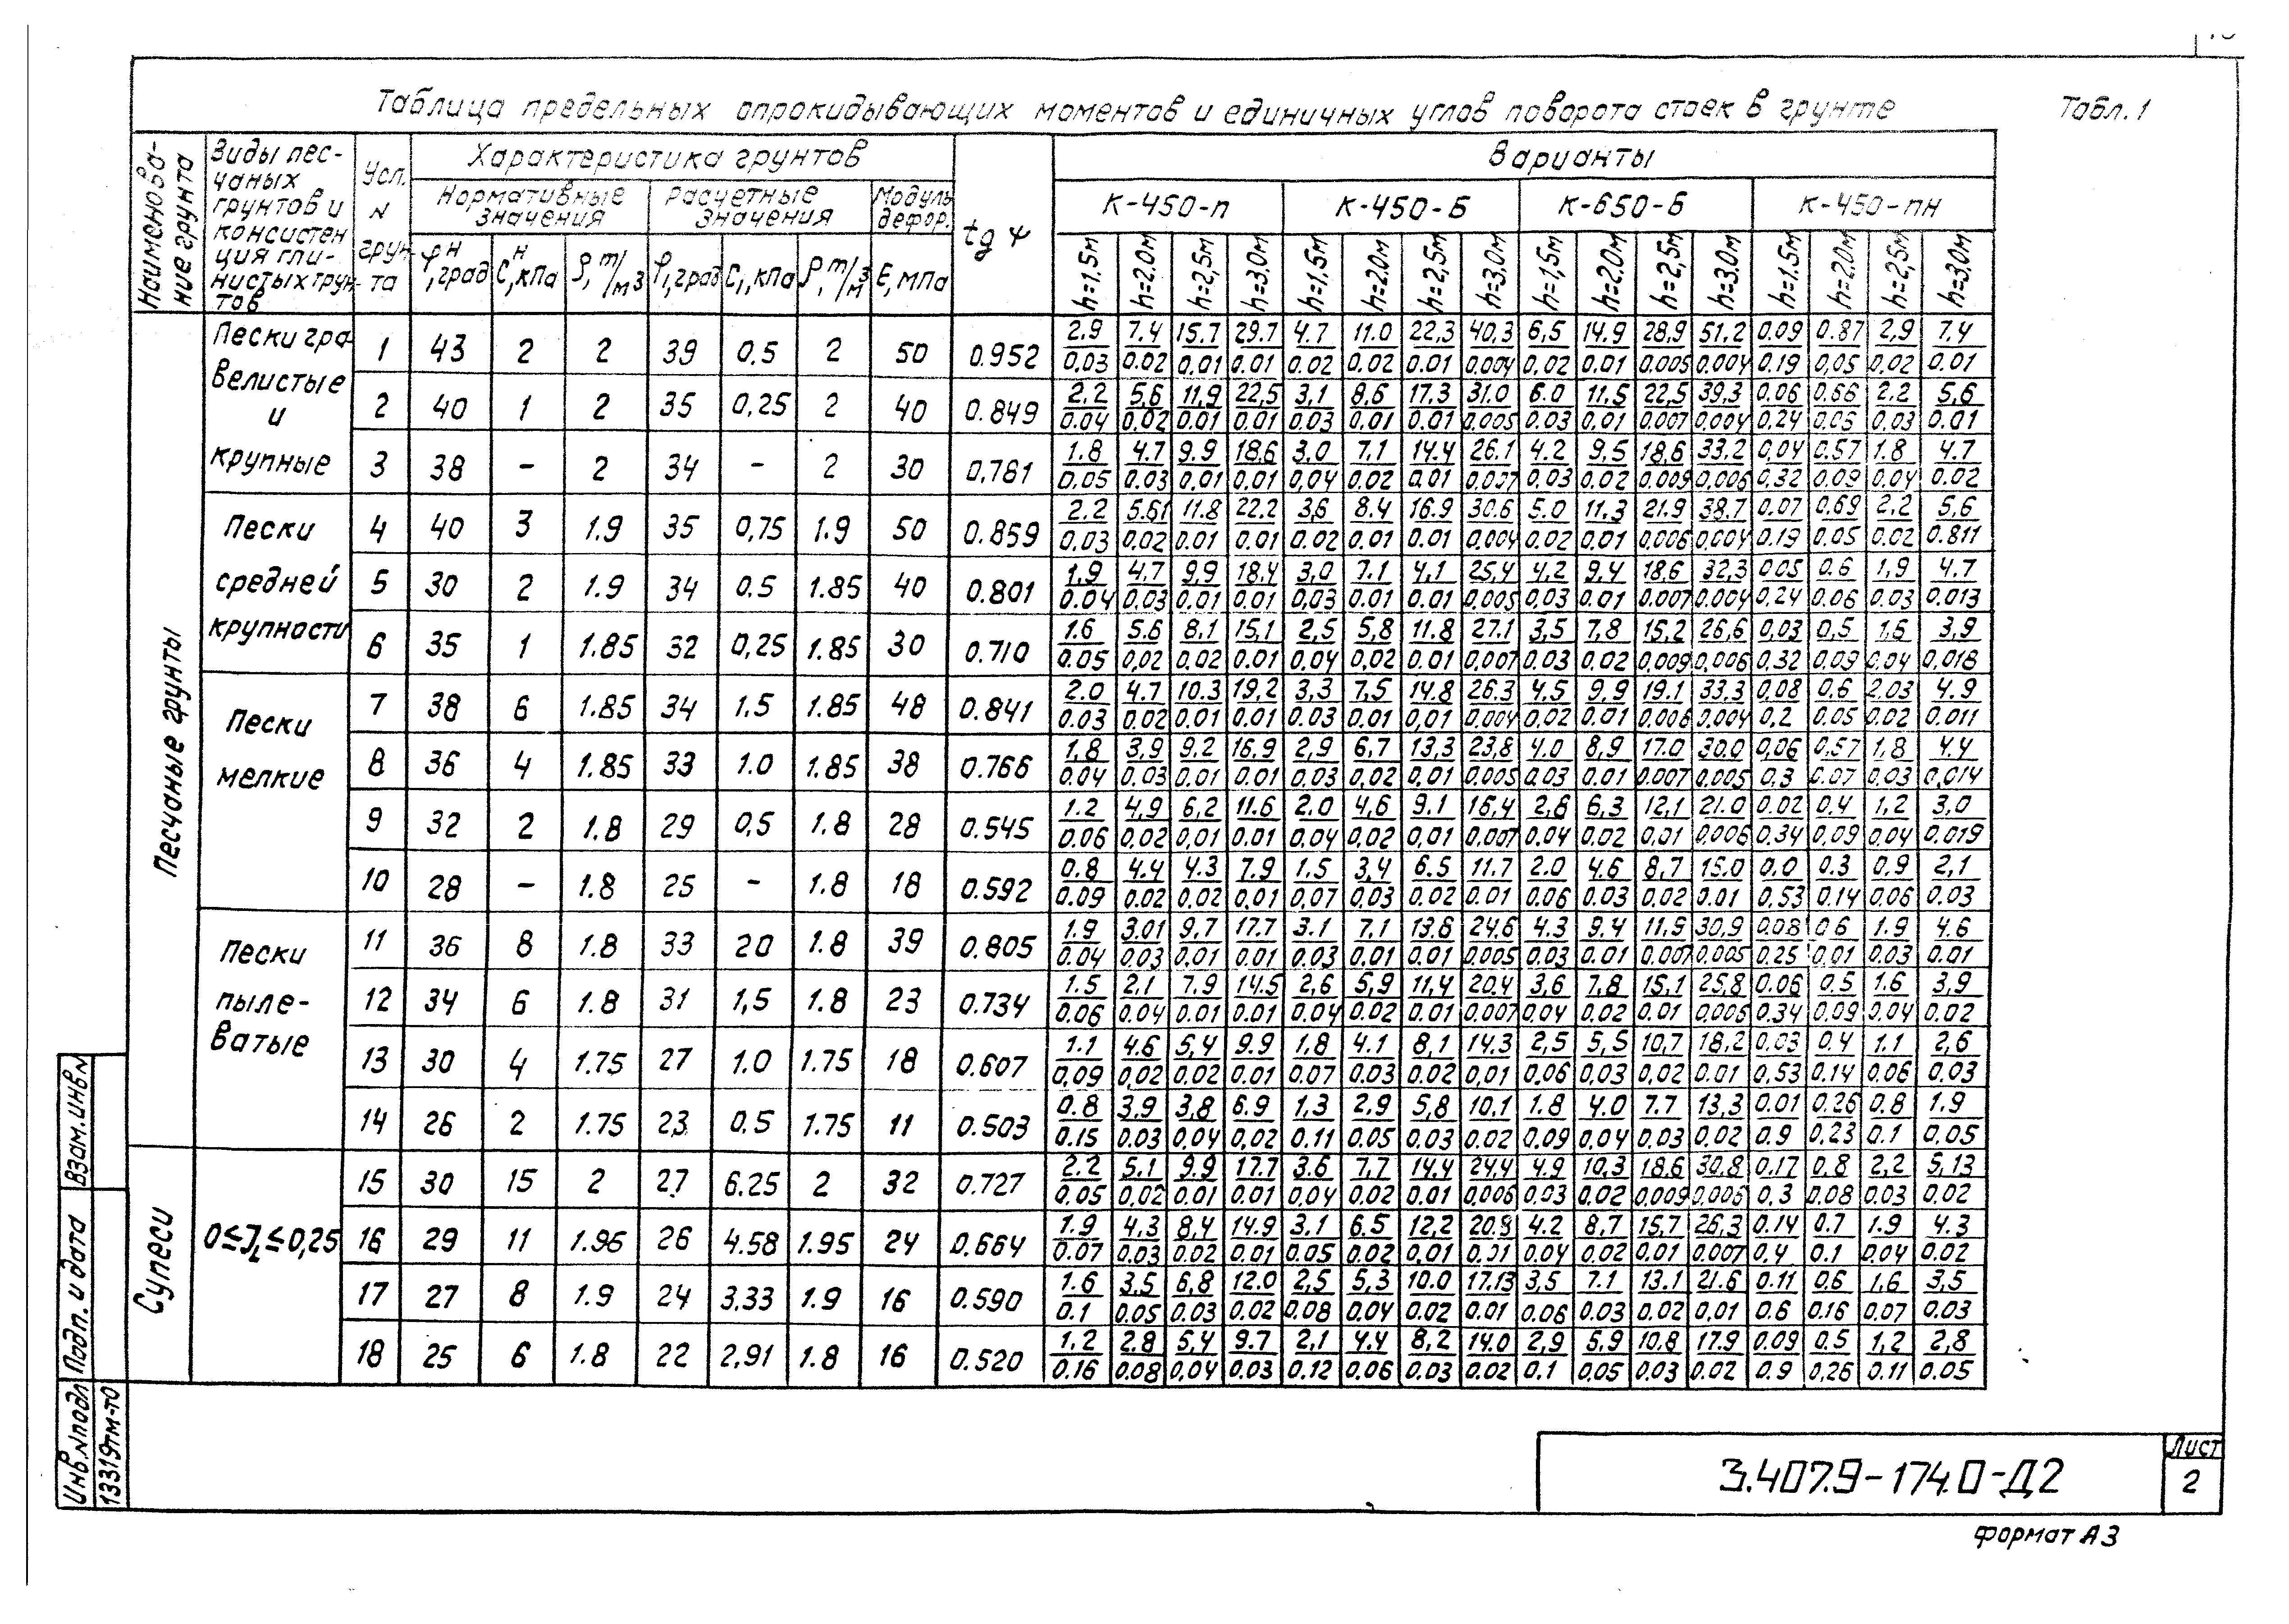 Таблица предельных опрокидывающих моментов и единичных углов поворота стоек в грунте Табл. 1
Наименование грунта
Виды песчаных грунтов и консистенция глинистых грунтов
Усл. N грунта
Характеристика грунтов
Нормативные значения
Расчетные значения
Модуль дефор.
φн, град Cн, кПа ρ, т/м3 φ1, град C1, кПа ρ, т/м3 E, МПа
tg ψ
Варианты
К-450-п К-450-Б К-650-Б К-450-пн
h=1,5м h=2.0м h=2,5м h=3.0м h=1,5м h=2.0м h=2,5м h=3.0м h=1,5м h=2.0м h=2,5м h=3.0м h=1.5м h=2.0м h=2,5м h=3.0м
Песчаные грунты
Пески гравелистые и крупные
1 43 2 2 39 0,5 2 50 0.952 2.9 7.4 15.7 29.7 4.7 11.0 22,3 40,3 6,5 14.9 28,9 51.2 0.09 0.87 2,9 7.4
0,03 0.02 0,01 0.01 0.02 0.02 0.01 0.004 0,02 0.01 0.005 0.004 0.19 0,05 0.02 0.01
2 40 1 2 35 0,25 2 40 0.849 2.2 5,6 11,9 22,5 3,1 8,6 17.3 31.0 6.0 11,5 22,5 39,3 0,06 0,66 2,2 5,6
0.04 0,02 0.01 0.01 0.03 0.01 0.01 0.005 0.03 0.01 0.007 0.004 0,24 0.06 0,03 0.01
3 38 - 2 34 - 2 30 0,781 1.8 4.7 9.9 18,6 3,0 7,1 14.4 26.1 4.2 9,5 18,6 33.2 0,04 0,57 1.8 4.7
0,05 0.03 0,01 0.01 0,04 0.02 0.01 0,007 0,03 0.02 0.009 0,006 0,32 0.09 0,04 0.02
Пески средней крупности
4 40 3 1.9 35 0,75 1.9 50 0.859 2.2 5.61 11.8 22.2 3,6 8.4 16.9 30.6 5.0 11,3 21.9 38.7 0,07 0,69 2,2 5,6
0,03 0,02 0.01 0.01 0.02 0.01 0.01 0.004 0.02 0.01 0,006 0,004 0.19 0.05 0.02 0.811
5 30 2 1.9 34 0.5 1.85 40 0.801 1,9 4.7 9,9 18,4 3,0 7.1 4,1 25,4 4,2 9,4 18,6 32,3 0.05 0.6 1,9 4.7
0.04 0,03 0.01 0.01 0,03 0.01 0.01 0,005 0,03 0.01 0.007 0.004 0,24 0.06 0.03 0.013
6 35 1 1.85 32 0,25 1.85 30 0.710 1.6 5.6 8,1 15,1 2,5 5,8 11.8 27.1 3,5 7,8 15,2 26,6 0,03 0,5 1,6 3,9
0.05 0,02 0.02 0.01 0,04 0,02 0.01 0,007 0.03 0.02 0,009 0,006 0,32 0,09 0,04 0,018
Пески мелкие
7 38 6 1.85 34 1.5 1.85 48 0.841 2.0 4.7 10.3 19,2 3,3 7,5 14.8 26.3 4,5 9,9 19.1 33.3 0,08 0,6 2,03 4.9
0.03 0.02 0.01 0.01 0.03 0.01 0,01 0,004 0,02 0.01 0.006 0.004 0,2 0.05 0.02 0.011
8 36 4 1.85 33 1.0 1.85 38 0.766 1,8 3,9 9.2 16.9 2,9 6,7 13,3 23,8 4.0 8,9 17.0 30.0 0,06 0,57 1,8 4.4
0.04 0,03 0.01 0.01 0.03 0,02 0,01 0.005 0.03 0.01 0.007 0.005 0,3 0.07 0,03 0,014
9 32 2 1.8 29 0,5 1.8 28 0.545 1.2 4,9 6,2 11.6 2.0 4,6 9.1 16,4 2,8 6,3 12,1 21.0 0.02 0,4 1,2 3,0
0.06 0,02 0,01 0.01 0,04 0,02 0,01 0.007 0.04 0.02 0,01 0,006 0,34 0,09 0,04 0,019
10 28 - 1.8 25 - 1.8 18 0.592 0.8 4.4 4.3 7,9 1.5 3,4 6.5 11.7 2.0 4.6 8,7 15.0 0.0 0.3 0,9 2,1
0.09 0.02 0,02 0,01 0,07 0,03 0.02 0.01 0.06 0.03 0.02 0.01 0,53 0,14 0,06 0.03
Пески пылеватые
11 36 8 1.8 33 20 1.8 39 0.805 1.9 3.01 9,7 17.7 3.1 7,1 13.6 24.6 4.3 9.4 11,5 30,9 0.08 0.6 1.9 4.6
0.04 0,03 0,01 0.01 0.03 0.01 0.01 0.005 0.03 0.01 0.007 0.005 0.25 0.01 0.03 0.01
12 34 6 1.8 31 1,5 1.8 23 0.734 1.5 2,1 7.9 14.5 2,6 5,9 11,4 20.4 3,6 7,8 15,1 25,8 0.06 0.5 1.6 3,9
0.06 0.04 0.01 0.01 0.04 0.02 0.01 0.007 0,04 0.02 0.01 0.005 0.34 0,09 0,04 0.02
13 30 4 1.75 27 1.0 1.75 18 0.607 1.1 4.6 5,4 9.9 1.8 4.1 8,1 14.3 2,5 5,5 10,7 18,2 0.03 0.4 1.1 2,6
0,09 0,02 0.02 0.01 0.07 0.03 0.02 0,01 0,06 0,03 0,02 0.01 0.53 0.14 0.06 0.03
14 26 2 1.75 23 0,5 1.75 11 0.503 0.8 3,9 3,8 6,9 1,3 2,9 5,8 10,1 1.8 4.0 7.7 13,3 0.01 0.26 0.8 1.9
0.15 0.03 0,04 0,02 0.11 0.05 0.03 0.02 0.09 0,04 0.03 0.02 0.9 0,23 0.1 0,05
Супеси
0≤JL≤0,25
15 30 15 2 27 6.25 2 32 0.727 2.2 5.1 9.9 17.7 3.6 7,7 14.4 24,4 4.9 10,3 18.6 30,8 0,17 0,8 2,2 5,13
0,05 0,02 0.01 0.01 0,04 0.02 0.01 0,006 0.03 0.02 0.009 0.006 0,3 0.08 0.03 0.02
16 29 11 1.96 26 4.58 1.95 24 0.664 1.9 4,3 8,4 14,9 3.1 6.5 12,2 20.8 4.2 8,7 15,7 26,3 0.14 0.7 1.9 4.3
0.07 0.03 0.02 0.01 0.05 0.02 0,01 0.01 0.04 0.02 0.01 0.007 0,4 0.1 0,04 0.02
17 27 8 1.9 24 3.33 1.9 16 0.590 1.6 3,5 6,8 12.0 2,5 5,3 10.0 17.13 3,5 7.1 13.1 21.6 0.11 0,6 1,6 3,5
0.1 0.05 0.03 0.02 0.08 0.04 0.02 0.01 0.06 0.03 0.02 0,01 0.6 0.16 0,07 0.03
18 25 6 1.8 22 2,91 1.8 16 0.520 1,2 2.8 5,4 9.7 2,1 4.4 8,2 14.0 2,9 5,9 10.8 17.9 0.09 0.5 1,2 2,8
0.16 0.08 0,04 0.03 0.12 0.06 0.03 0.02 0.1 0,05 0.03 0.02 0.9 0,26 0.11 0.05
Взам.инвN
Подп. и дата
Инв.Nподл
13319тм-т0
3.407.9-174.0-Д2
Лист
2
Формат А3